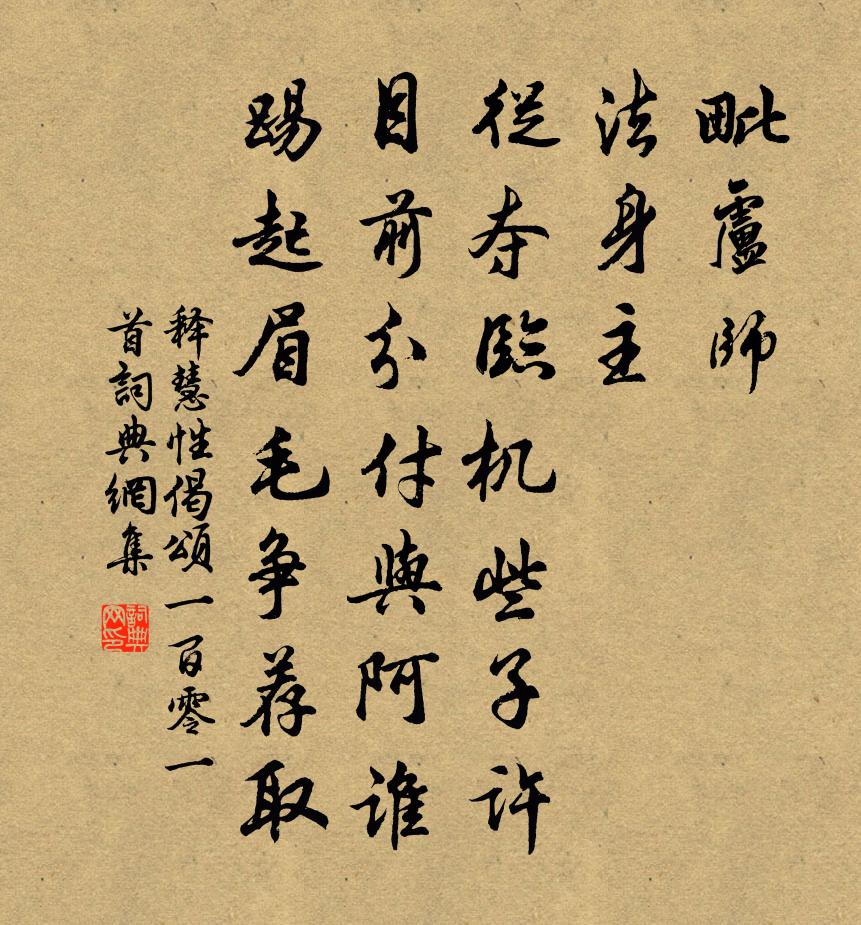 毗盧師
法身主
從夺臨机些子許
目前分付與阿誰
踢起眉毛争荐取
释慧性偈頌一百零一
首詞典網集
詞典网印